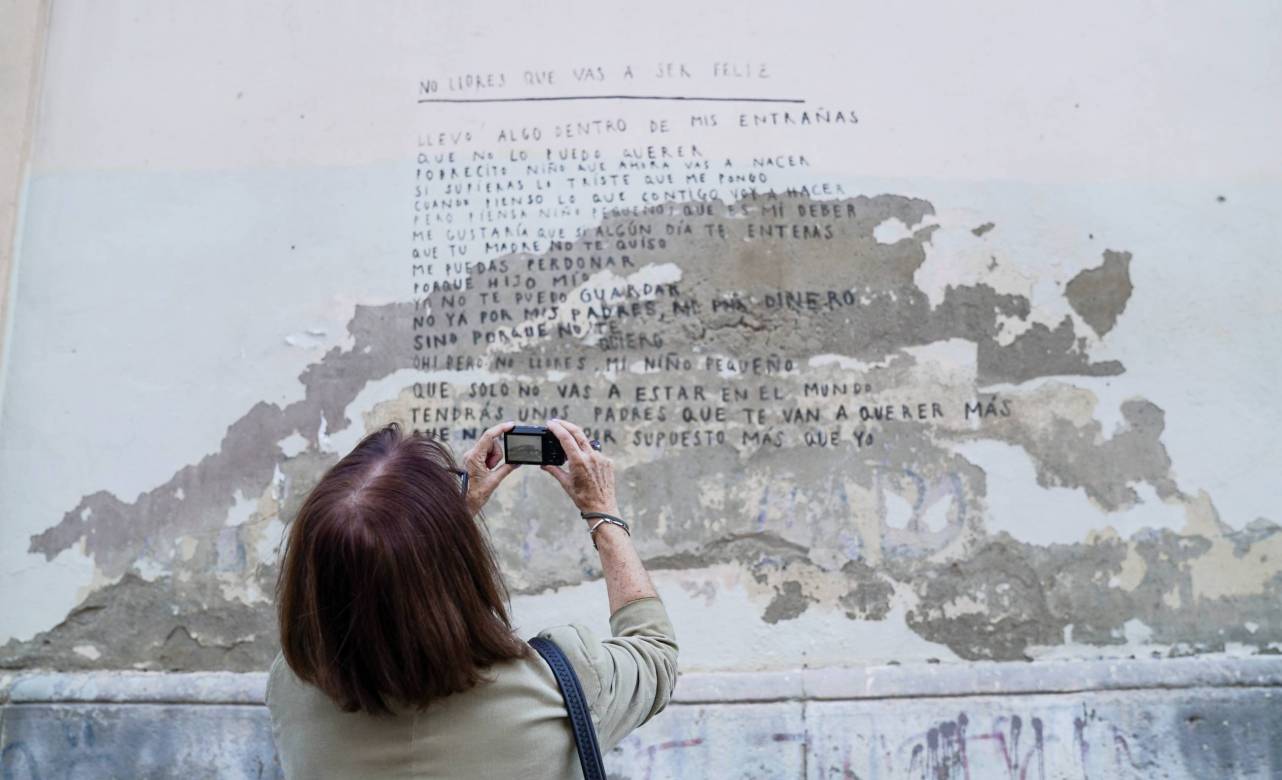 NO LLORES QUE VAS A SER FELIZ
LLEVO ALGO DENTRO DE MIS ENTRAÑAS
QUE NO LO PUEDO QUERER
POBRECITO NIÑO QUE AHORA VAS A NACER
SI SUPIERAS LO TRISTE QUE ME PONGO
CUANDO PIENSO LO QUE CONTIGO VOY A HACER
PERO PIENSA NIÑO PEQUEÑO, QUE ES MI DEBER
ME GUSTARÍA QUE SI ALGÚN DÍA TE ENTERAS
QUE TU MADRE NO TE QUISO
ME PUEDAS PERDONAR
PORQUE HIJO MIO
YO NO TE PUEDO GUARDAR
NO YA POR MIS PADRES, NI POR DINERO
SINO PORQUE NO TE
QUIERO
OH! PERO NO LLORES, MI NIÑO PEQUEÑO
QUE SOLO NO VAS A ESTAR EN EL MUNDO
TENDRÁS UNOS PADRES QUE TE VAN A QUERER MÁS
QUE POR SUPUESTO MÁS QUE YO